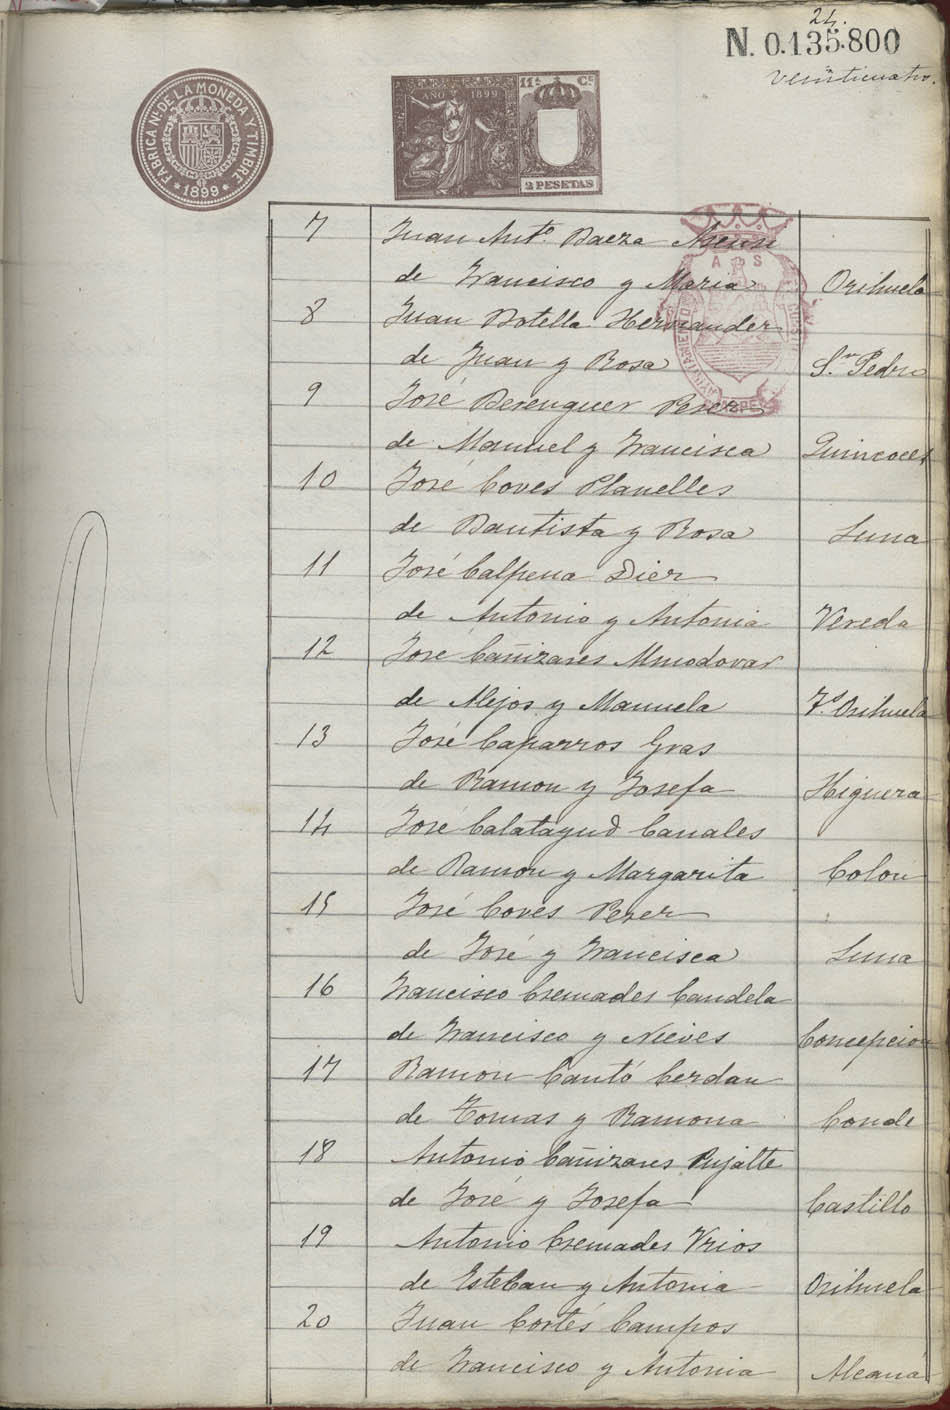 24.
N. 0.135.800
Veinticuatro.
FABRICA NAL DE LA MONEDA Y TIMBRE
* 1899 *
AÑO 1899
11ª Cª
2 PESETAS
7 Juan Antº. Baeza Asensi
de Francisco y Maria Orihuela
8 Juan Botella Hernandez
de Juan y Rosa S.n Pedro
9 José Berenguer Perez
de Manuel y Francisca Quincoces
10 José Coves Planelles
de Bautista y Rosa Luna
11 José Calpena Diez
de Antonio y Antonia Vereda
12 José Cañizares Almodovar
de Alejos y Manuela Orihuela
13 José Caparros Gras
de Ramon y Josefa Higuera
14 José Calatayud Canales
de Ramon y Margarita Colon
15 José Coves Perez
de José y Francisca Luna
16 Francisco Cremades Candela
de Francisco y Nieves Concepcion
17 Ramon Cantó Cerdan
de Tomas y Ramona Conde
18 Antonio Cañizares Pujalte
de José y Josefa Castillo
19 Antonio Cremades Vrios
de Esteban y Antonia Orihuela
20 Juan Cortés Campos
de Francisco y Antonia Alcaná